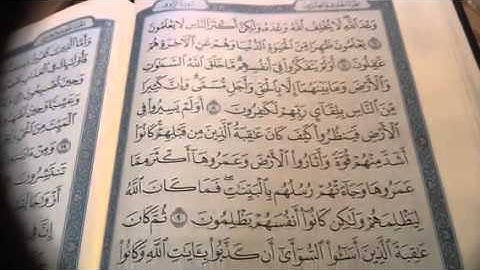 سورة الروم
وَعْدَ ٱللَّهِ لَا يُخْلِفُ ٱللَّهُ وَعْدَهُۥ وَلَٰكِنَّ أَكْثَرَ ٱلنَّاسِ لَا يَعْلَمُونَ
٦ يَعْلَمُونَ ظَٰهِرًا مِّنَ ٱلْحَيَوٰةِ ٱلدُّنْيَا وَهُمْ عَنِ ٱلْءَاخِرَةِ هُمْ
غَٰفِلُونَ ٧ أَوَلَمْ يَتَفَكَّرُوا۟ فِىٓ أَنفُسِهِم مَّا خَلَقَ ٱللَّهُ ٱلسَّمَٰوَٰتِ
وَٱلْأَرْضَ وَمَا بَيْنَهُمَآ إِلَّا بِٱلْحَقِّ وَأَجَلٍ مُّسَمًّى وَإِنَّ كَثِيرًا
مِّنَ ٱلنَّاسِ بِلِقَآئِ رَبِّهِمْ لَكَٰفِرُونَ ٨ أَوَلَمْ يَسِيرُوا۟ فِى
ٱلْأَرْضِ فَيَنظُرُوا۟ كَيْفَ كَانَ عَٰقِبَةُ ٱلَّذِينَ مِن قَبْلِهِمْ كَانُوٓا۟
أَشَدَّ مِنْهُمْ قُوَّةً وَأَثَارُوا۟ ٱلْأَرْضَ وَعَمَرُوهَآ أَكْثَرَ مِمَّا
عَمَرُوهَا وَجَآءَتْهُمْ رُسُلُهُم بِٱلْبَيِّنَٰتِ فَمَا كَانَ ٱللَّهُ
لِيَظْلِمَهُمْ وَلَٰكِن كَانُوٓا۟ أَنفُسَهُمْ يَظْلِمُونَ ٩ ثُمَّ كَانَ
عَٰقِبَةَ ٱلَّذِينَ أَسَٰٓـُٔوا۟ ٱلسُّوٓأَىٰٓ أَن كَذَّبُوا۟ بِـَٔايَٰتِ ٱللَّهِ وَكَانُوا۟
وَأَمَّا
وَحِينَ
ٱلْمَيِّتَ مِنَ
تَنتَشِرُونَ
إِنَّ